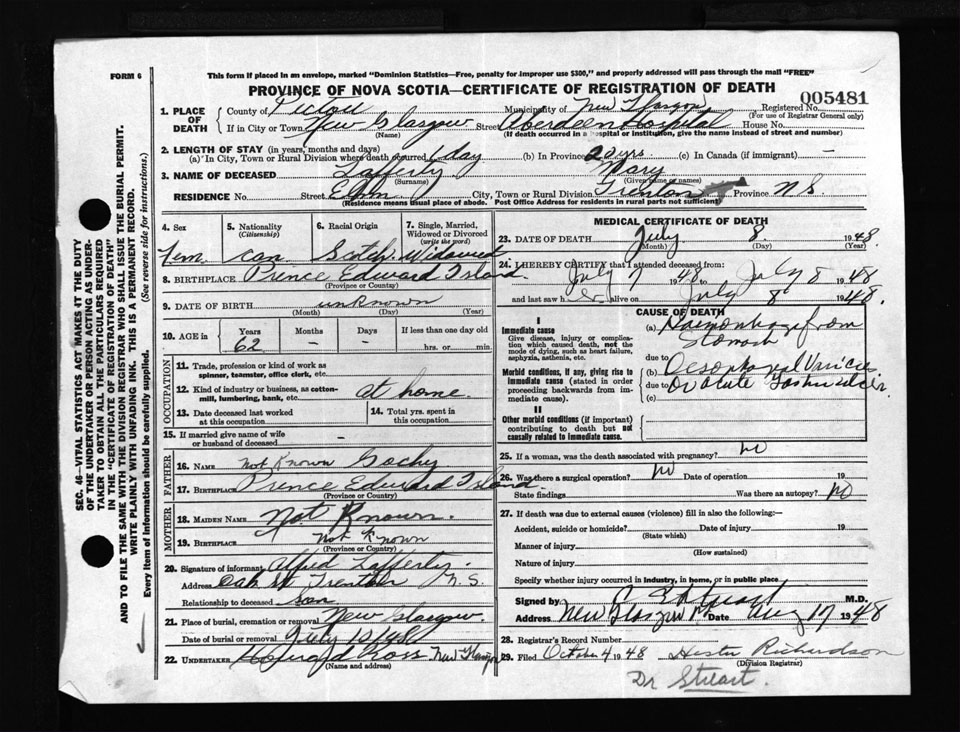 FORM 6
This form if placed in an envelope, marked "Dominion Statistics—Free, penalty for improper use $300," and properly addressed will pass through the mail "FREE"
PROVINCE OF NOVA SCOTIA—CERTIFICATE OF REGISTRATION OF DEATH
005481
1. PLACE OF DEATH
County of Pictou Municipality of New Glasgow Registered No.
(For use of Registrar General only)
If in City or Town New Glasgow Street Aberdeen Hospital House No.
(Name) (If death occurred in a hospital or institution, give the name instead of street and number)
2. LENGTH OF STAY (in years, months and days)
(a) In City, Town or Rural Division where death occurred 1 day (b) In Province 20 yrs. (c) In Canada (if immigrant) —
3. NAME OF DECEASED Lafferty Mary
(Surname) (Given name or names)
RESIDENCE No. Street Elm City, Town or Rural Division Trenton Province N.S.
(Residence means usual place of abode. Post Office Address for residents in rural parts not sufficient)
4. Sex
Fem.
5. Nationality (Citizenship)
Can.
6. Racial Origin
Scotch
7. Single, Married, Widowed or Divorced (write the word)
Widowed
8. BIRTHPLACE Prince Edward Island
(Province or Country)
9. DATE OF BIRTH unknown
(Month) (Day) (Year)
10. AGE in
Years Months Days If less than one day old
62 – – hrs. or min.
OCCUPATION
11. Trade, profession or kind of work as spinner, teamster, office clerk, etc.
12. Kind of industry or business, as cotton-mill, lumbering, bank, etc. at home.
13. Date deceased last worked at this occupation
14. Total yrs. spent in this occupation
15. If married give name of wife or husband of deceased –
FATHER
16. NAME not Known Gochy
17. BIRTHPLACE Prince Edward Island.
(Province or Country)
MOTHER
18. MAIDEN NAME Not Known.
19. BIRTHPLACE Not Known
(Province or Country)
20. Signature of informant Alfred Lafferty.
Address Oak St Trenton N.S.
Relationship to deceased Son
21. Place of burial, cremation or removal New Glasgow.
Date of burial or removal July 10/48
22. UNDERTAKER Ross New Glasgow
(Name and address)
MEDICAL CERTIFICATE OF DEATH
23. DATE OF DEATH July 8 1948.
(Month) (Day) (Year)
24. I HEREBY CERTIFY that I attended deceased from:
July 7 1948 to July 8 1948
and last saw h er alive on July 8 1948.
CAUSE OF DEATH
I
Immediate cause
Give disease, injury or complication which caused death, not the mode of dying, such as heart failure, asphyxia, asthenia, etc.
(a) Haemorrhage from Stomach
due to
Morbid conditions, if any, giving rise to immediate cause (stated in order proceeding backwards from immediate cause).
(b) Oesophageal Varices
due to or acute Gastric ulcer
(c)
II
Other morbid conditions (if important) contributing to death but not causally related to immediate cause.
25. If a woman, was the death associated with pregnancy? no
26. Was there a surgical operation? no Date of operation 19
State findings Was there an autopsy? no
27. If death was due to external causes (violence) fill in also the following:—
Accident, suicide or homicide? Date of injury 19
(State which)
Manner of injury
(How sustained)
Nature of injury
Specify whether injury occurred in industry, in home, or in public place
Signed by Stuart M.D.
Address New Glasgow Date Aug 17 1948
28. Registrar's Record Number
29. Filed October 4 1948 Hester Richardson
(Division Registrar)
Dr Stuart.
SEC. 46—VITAL STATISTICS ACT MAKES IT THE DUTY
OF THE UNDERTAKER OR PERSON ACTING AS UNDER-
TAKER TO OBTAIN ALL THE PARTICULARS REQUIRED
IN THE "CERTIFICATE OF REGISTRATION OF DEATH"
AND TO FILE THE SAME WITH THE DIVISION REGISTRAR WHO SHALL ISSUE THE BURIAL PERMIT.
WRITE PLAINLY WITH UNFADING INK. THIS IS A PERMANENT RECORD.
Every item of information should be carefully supplied. (See reverse side for instructions.)